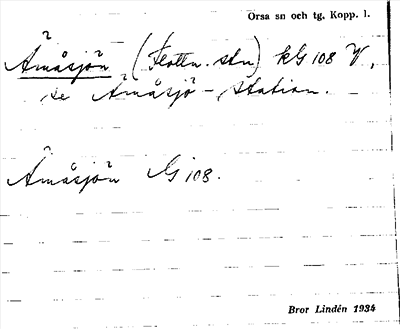 Orsa sn och tg. Kopp. l.
Åmåsjön (Flottn. stn) kG 108 V,
se Åmåsjö-station.
Åmåsjön G 108.
Bror Lindén 1934